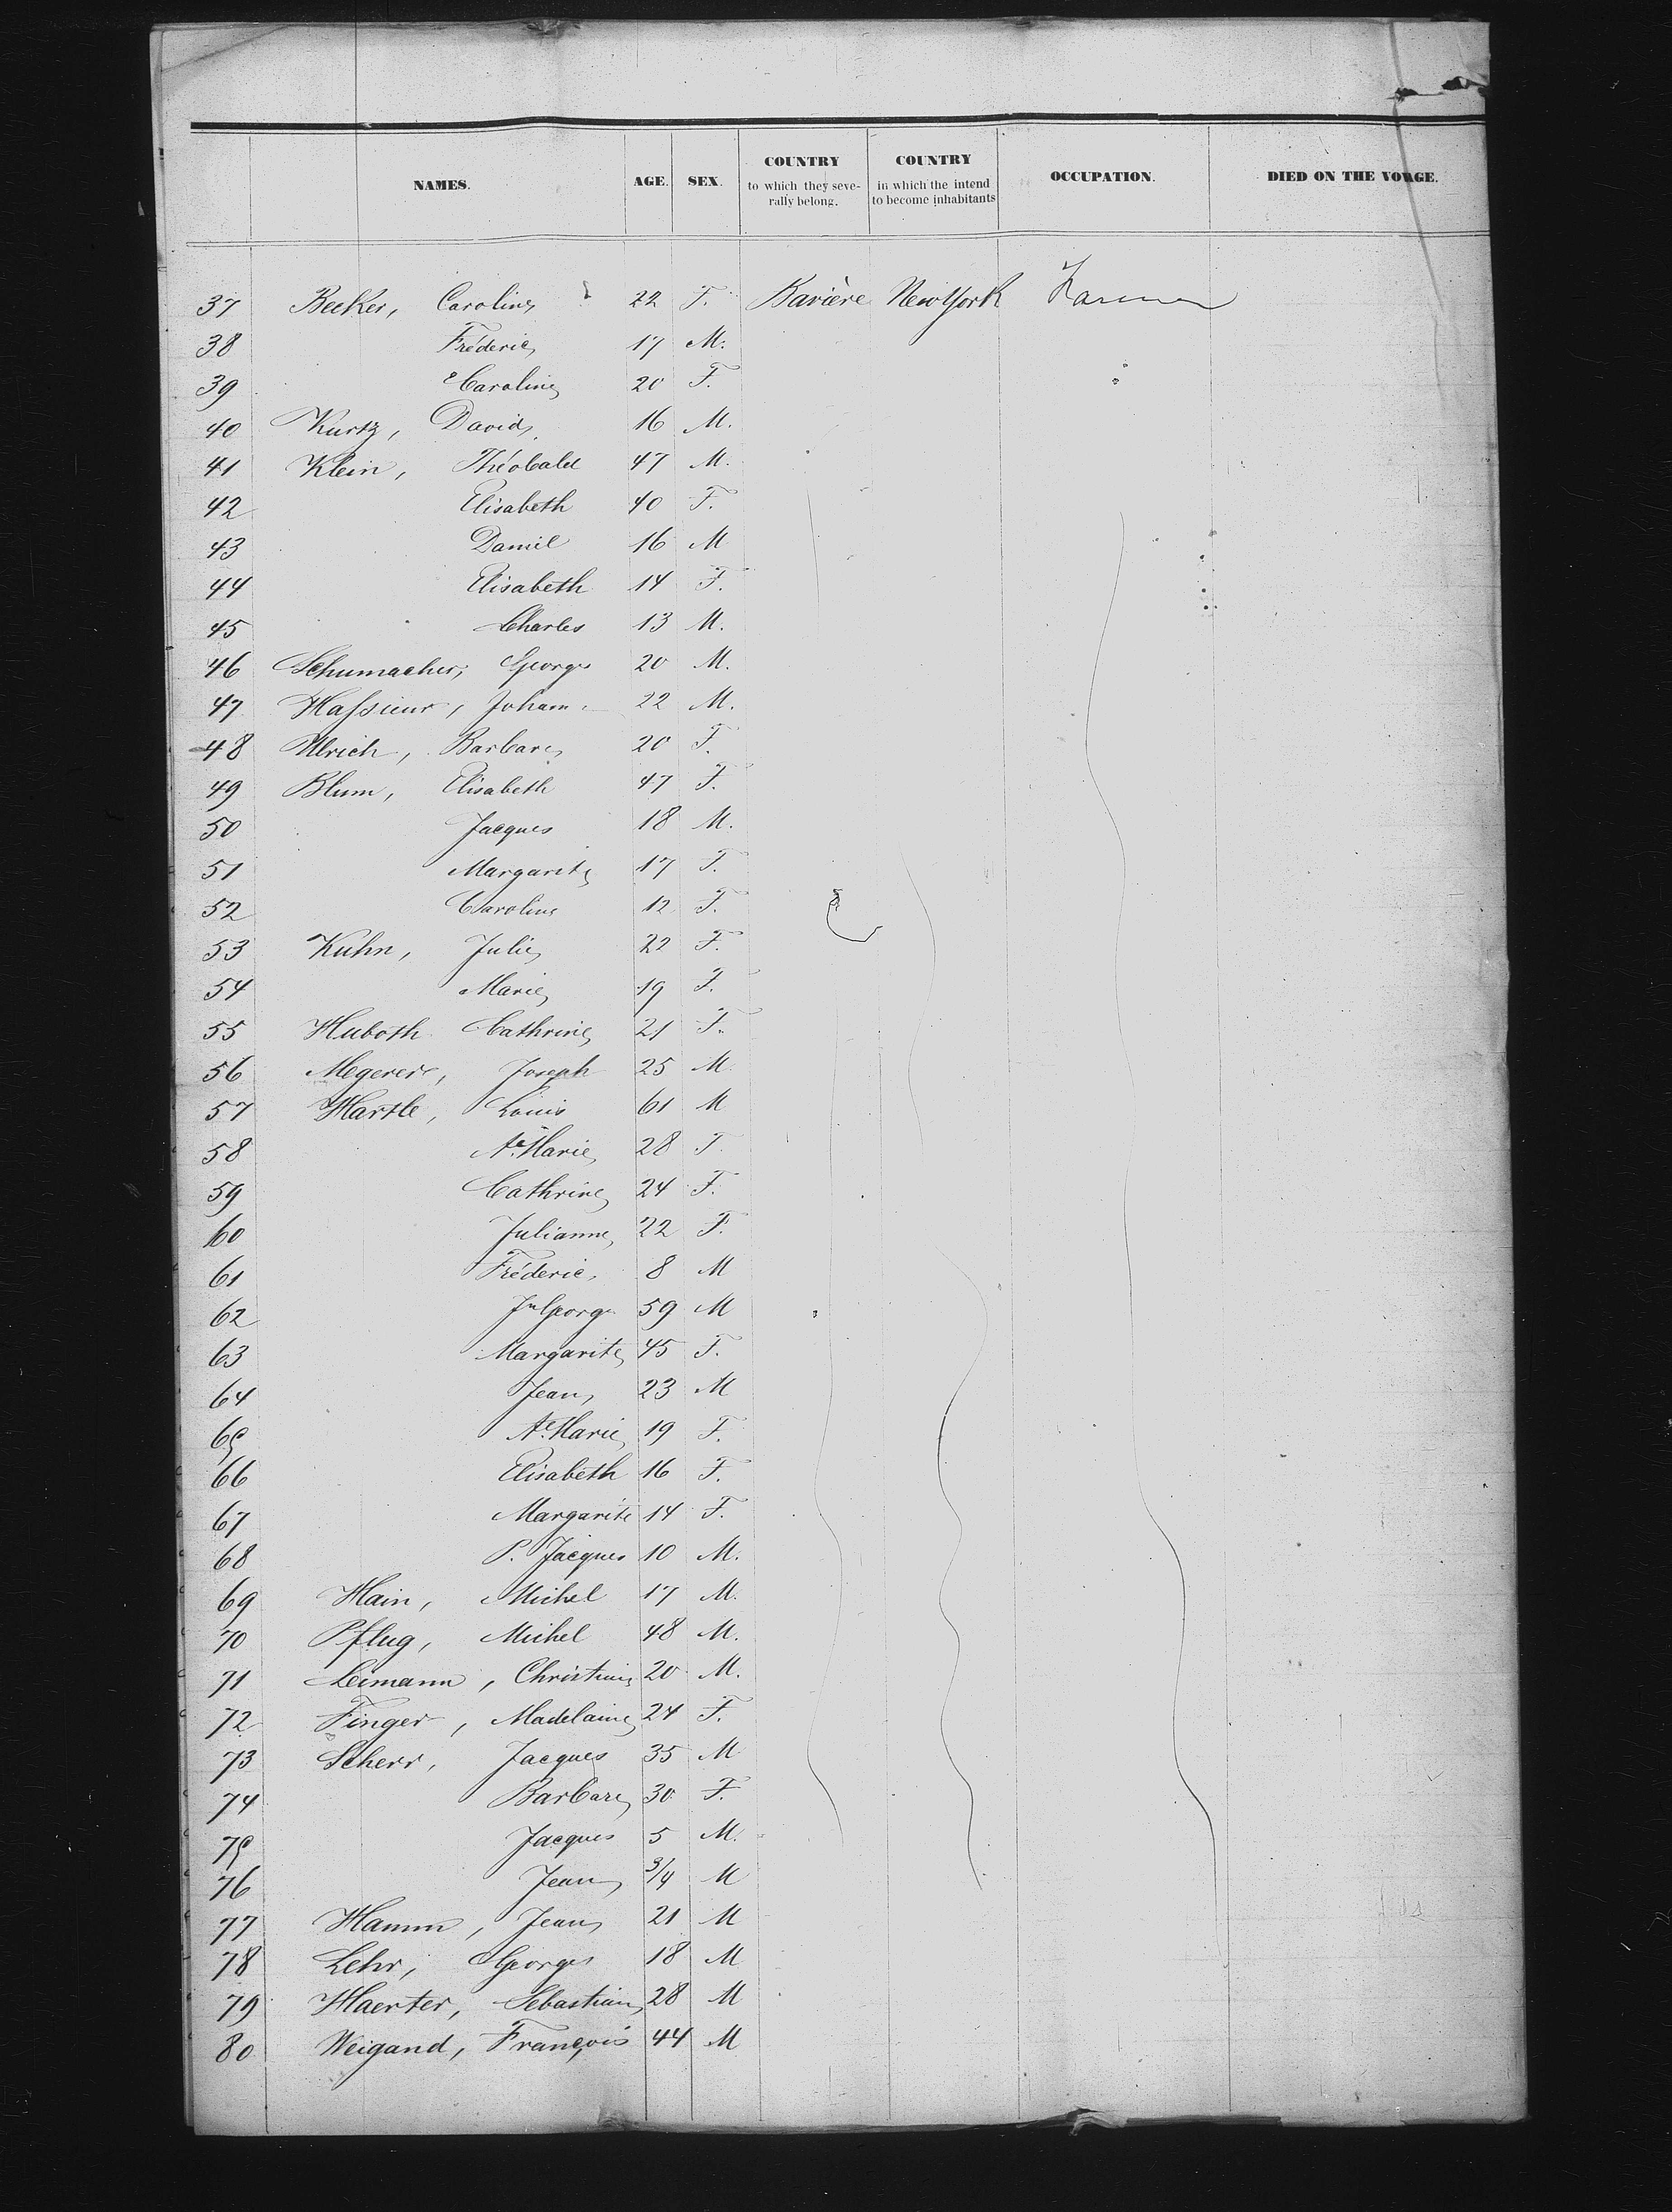 NAMES. AGE. SEX. COUNTRY to which they severally belong. COUNTRY in which the intend to become inhabitants OCCUPATION. DIED ON THE VOYAGE.
37 Becker, Caroline 22 F. Bavière New York Farmer
38 Fréderic 17 M.
39 Caroline 20 F.
40 Kurtz, David 16 M.
41 Klein, Théobald 47 M.
42 Elisabeth 40 F.
43 Daniel 16 M
44 Elisabeth 14 F.
45 Charles 13 M.
46 Schumacher, George 20 M.
47 Hassieur, Johann 22 M.
48 Ulrich, Barbare 20 F.
49 Blum, Elisabeth 47 F.
50 Jacques 18 M.
51 Margarite 17 F.
52 Caroline 12 F.
53 Kuhn, Julie 22 F.
54 Marie 19 F.
55 Huboth Cathrine 21 F.
56 Megerere, Joseph 25 M.
57 Hartle, Louis 61 M
58 Ae. Marie 28 F.
59 Cathrine 24 F.
60 Julianne 22 F.
61 Fréderic 8 M
62 Jn George 59 M
63 Margarite 45 F.
64 Jean 23 M
65 Ae. Marie 19 F.
66 Elisabeth 16 F.
67 Margarite 14 F.
68 P. Jacques 10 M.
69 Hain, Michel 17 M.
70 Pflug, Michel 48 M.
71 Leimann, Christian 20 M.
72 Finger, Madelaine 24 F.
73 Scherr, Jacques 35 M
74 Barbare 30 F.
75 Jacques 5 M.
76 Jean 3/4 M
77 Hamm, Jean 21 M
78 Lehr, George 18 M
79 Haerter, Sebastian 28 M
80 Weigand, François 44 M